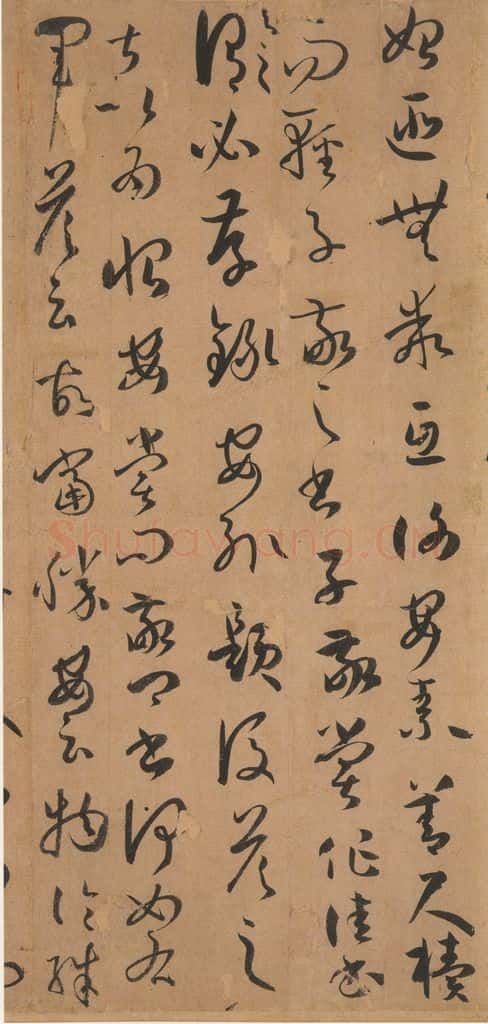 始匪無乖互謝安素善尺牘
而輕子敬之書子敬嘗作佳書
與之
謂必存錄安輒題後答之
甚以為恨安嘗問敬卿書何如右
軍答云故當勝安云物論殊
Shufawang.CN